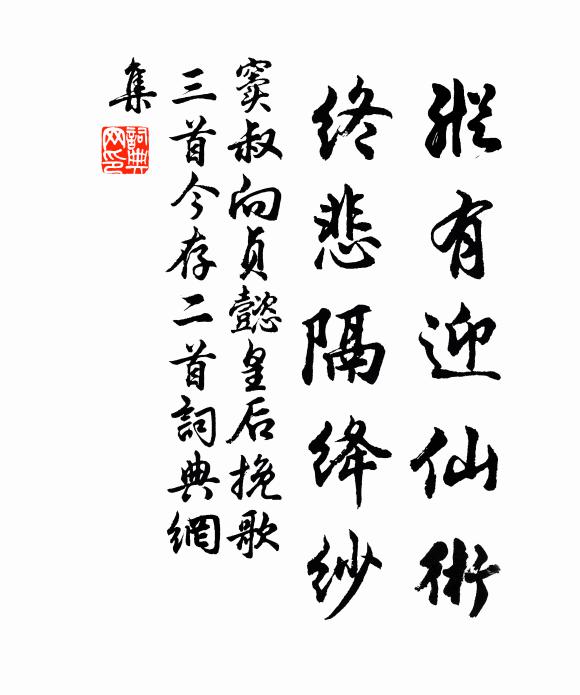 縱有迎仙術
終悲隔絳紗
竇叔向貞懿皇后挽歌
三首今存二首詞典網
集
詞典
网印